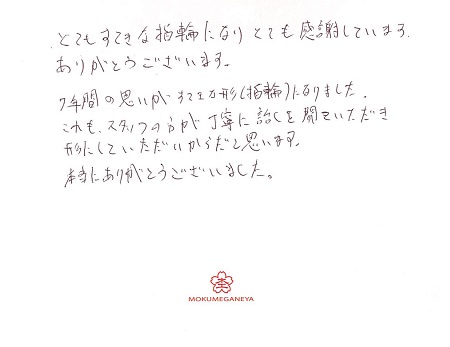 とてもすてきな指輪になりとても感謝しています。
ありがとうございます。
7年間の思いがすてきな形(指輪)になりました。
これも、スタッフの方が丁寧に話しを聞いていただき
形にしていただいからだと思います。
本当にありがとうございました。
MOKUMEGANEYA